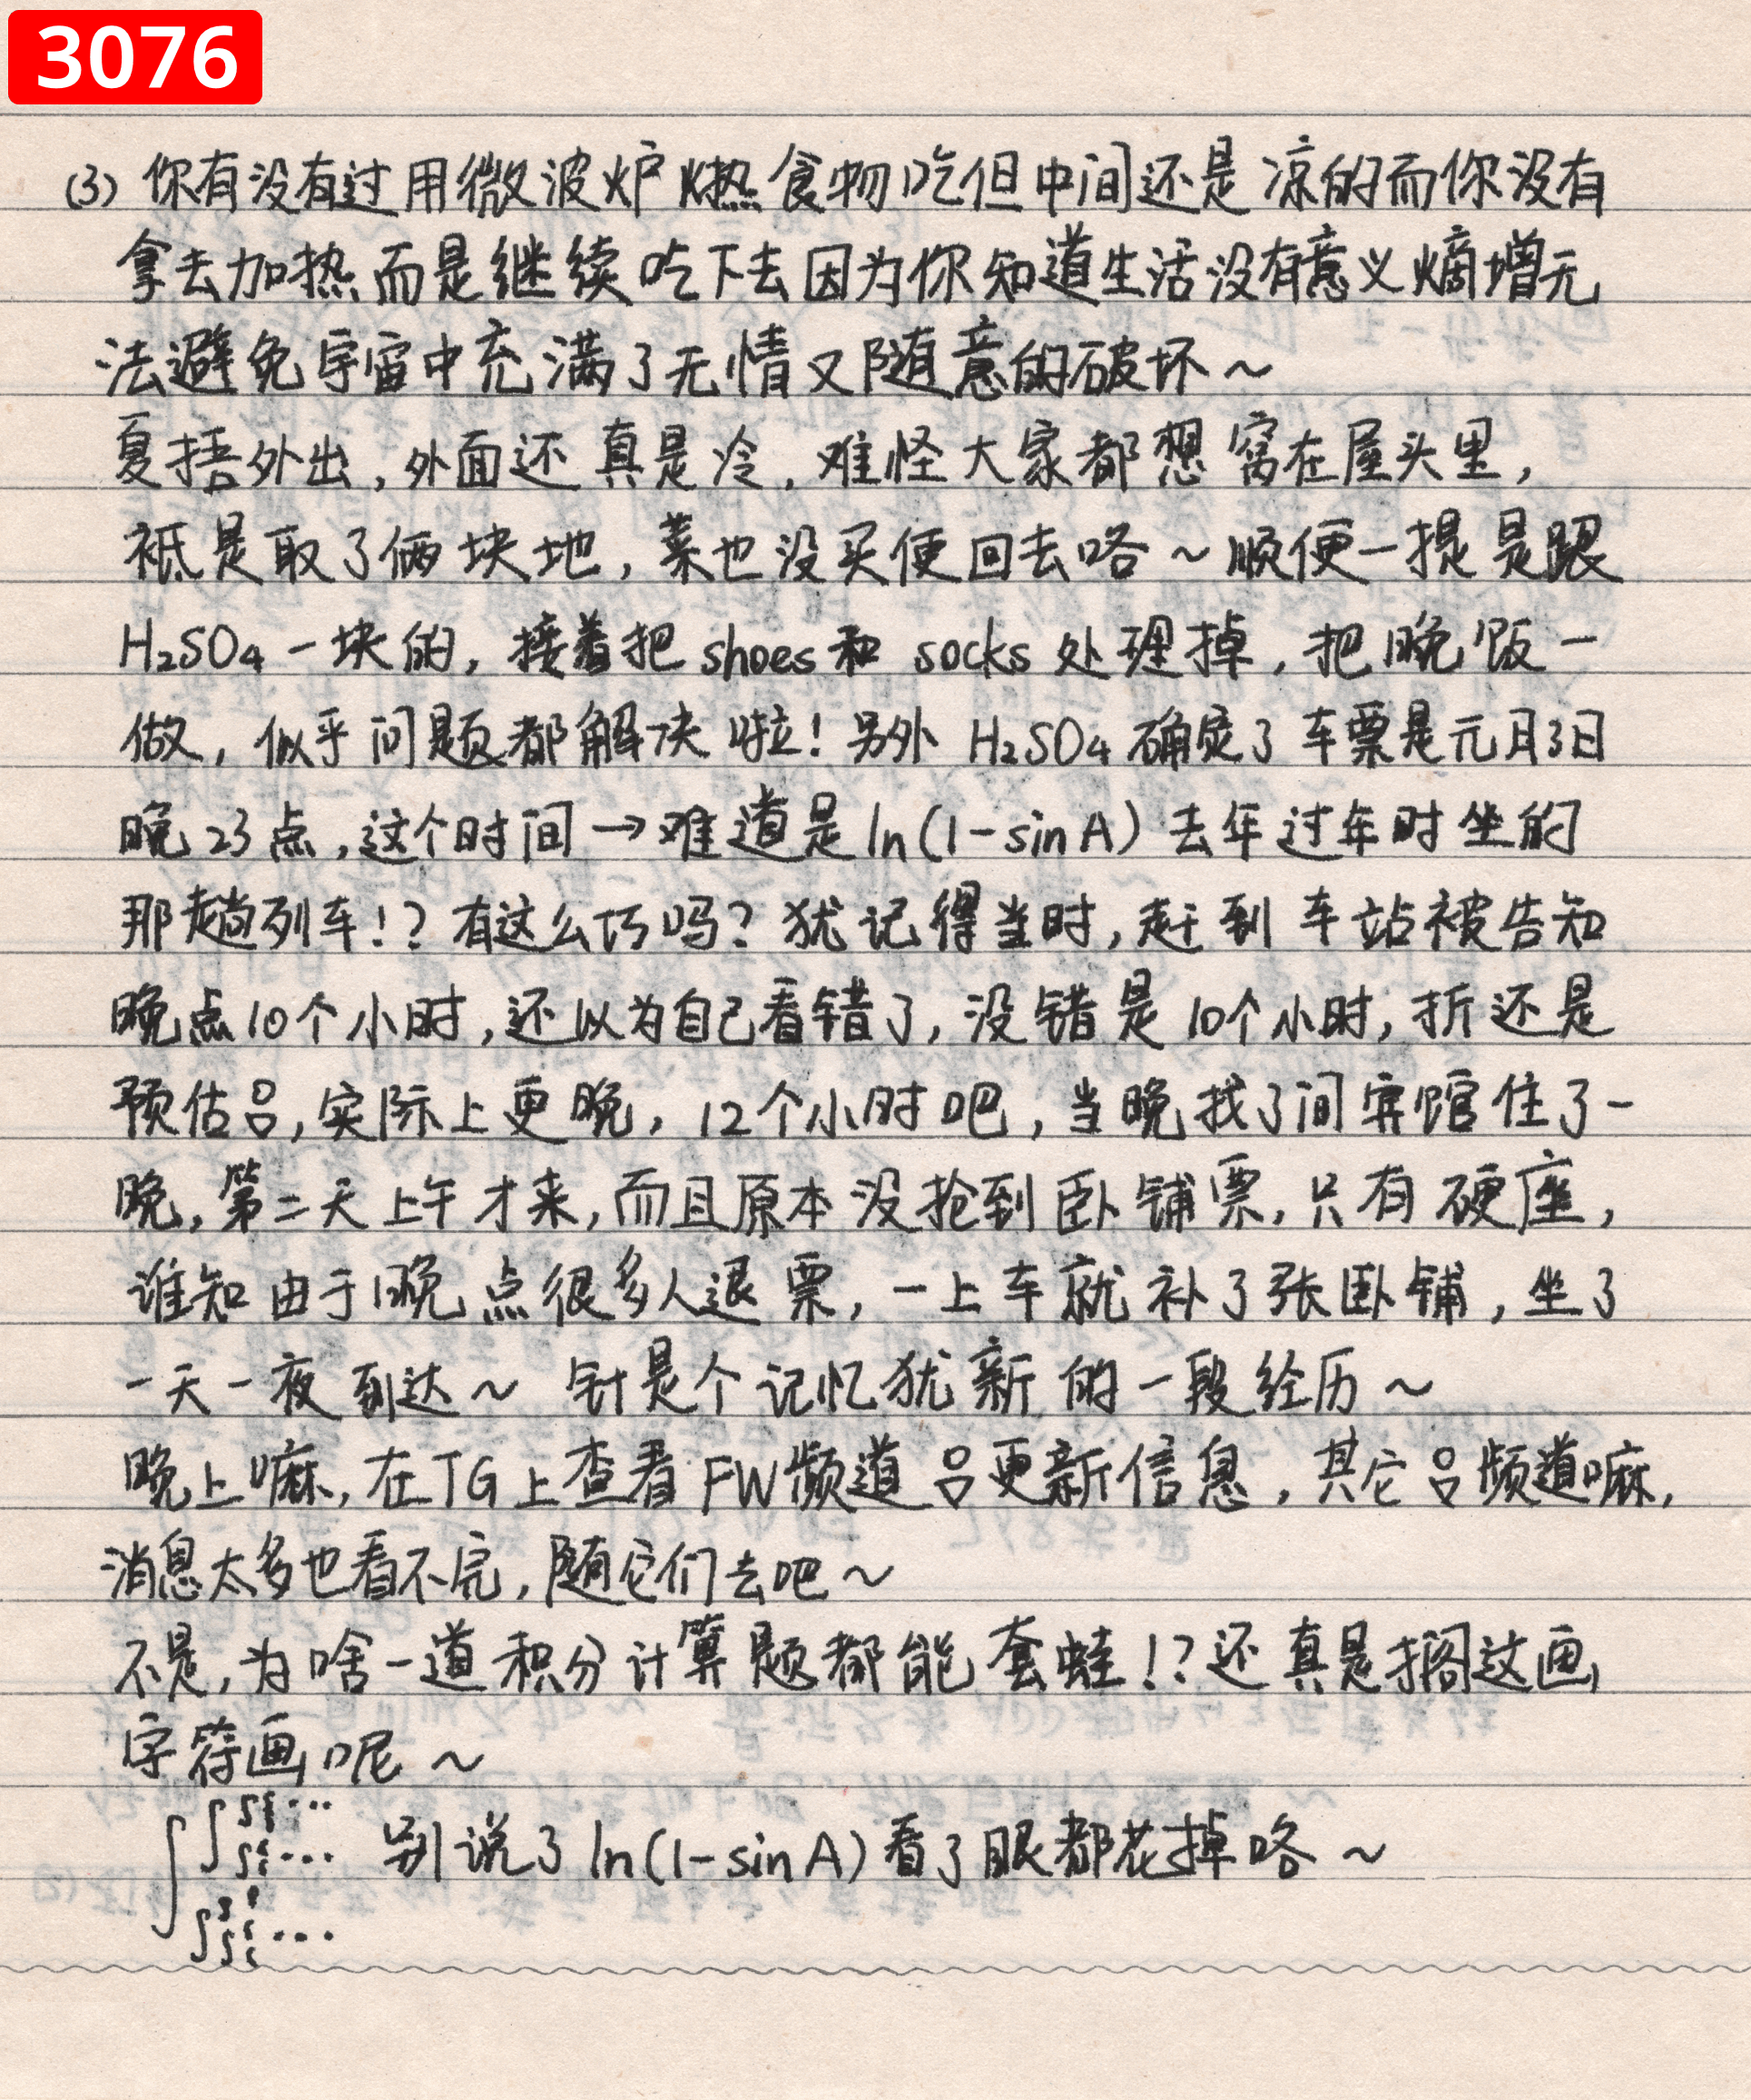 3076
(3) 你有没有过用微波炉㶽热食物吃但中间还是凉的而你没有
拿去加热而是继续吃下去因为你知道生活没有意义熵增无
法避免宇宙中充满了无情又随意的破坏~
夏捂外出,外面还真是冷,难怪大家都想窝在屋头里,
祗是取了俩块地,菜也没买便回去咯~顺便一提是跟
H₂SO₄一块的,接着把shoes和 socks 处理掉,把晚饭一
做,似乎问题都解决啦!另外 H₂SO₄确定了车票是元月3日
晚23点,这个时间→难道是ln(1-sinA)去年过年时坐的
那趟列车!?有这么巧吗?犹记得当时,赶到车站被告知
晚点10个小时,还以为自己看错了,没错是10个小时,折还是
预估吕,实际上更晚,12个小时吧,当晚找了间宾馆住了一
晚,第二天上午才来,而且原本没抢到卧铺票,只有硬座,
谁知由于晚点很多人退票,一上车就补了张卧铺,坐了
一天一夜到达~ 针是个记忆犹新的一段经历~
晚上嘛,在TG上查看FW频道吕更新信息,其它吕频道嘛,
消息太多也看不完,随它们去吧~
不是,为啥一道积分计算题都能套蛙!?还真是搁这画
字符画呢~
∫∫∫∫⋯
∫∫⋯ 别说了ln(1-sinA)看了眼都花掉咯~
∫∫∫⋯